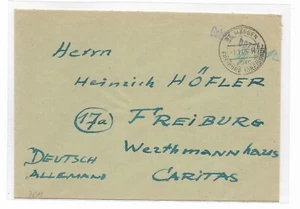 Herrn
Heinrich HÖFLER
17a FREIBURG
Werthmannhaus
DEUTSCH CARITAS
ALLEMAND